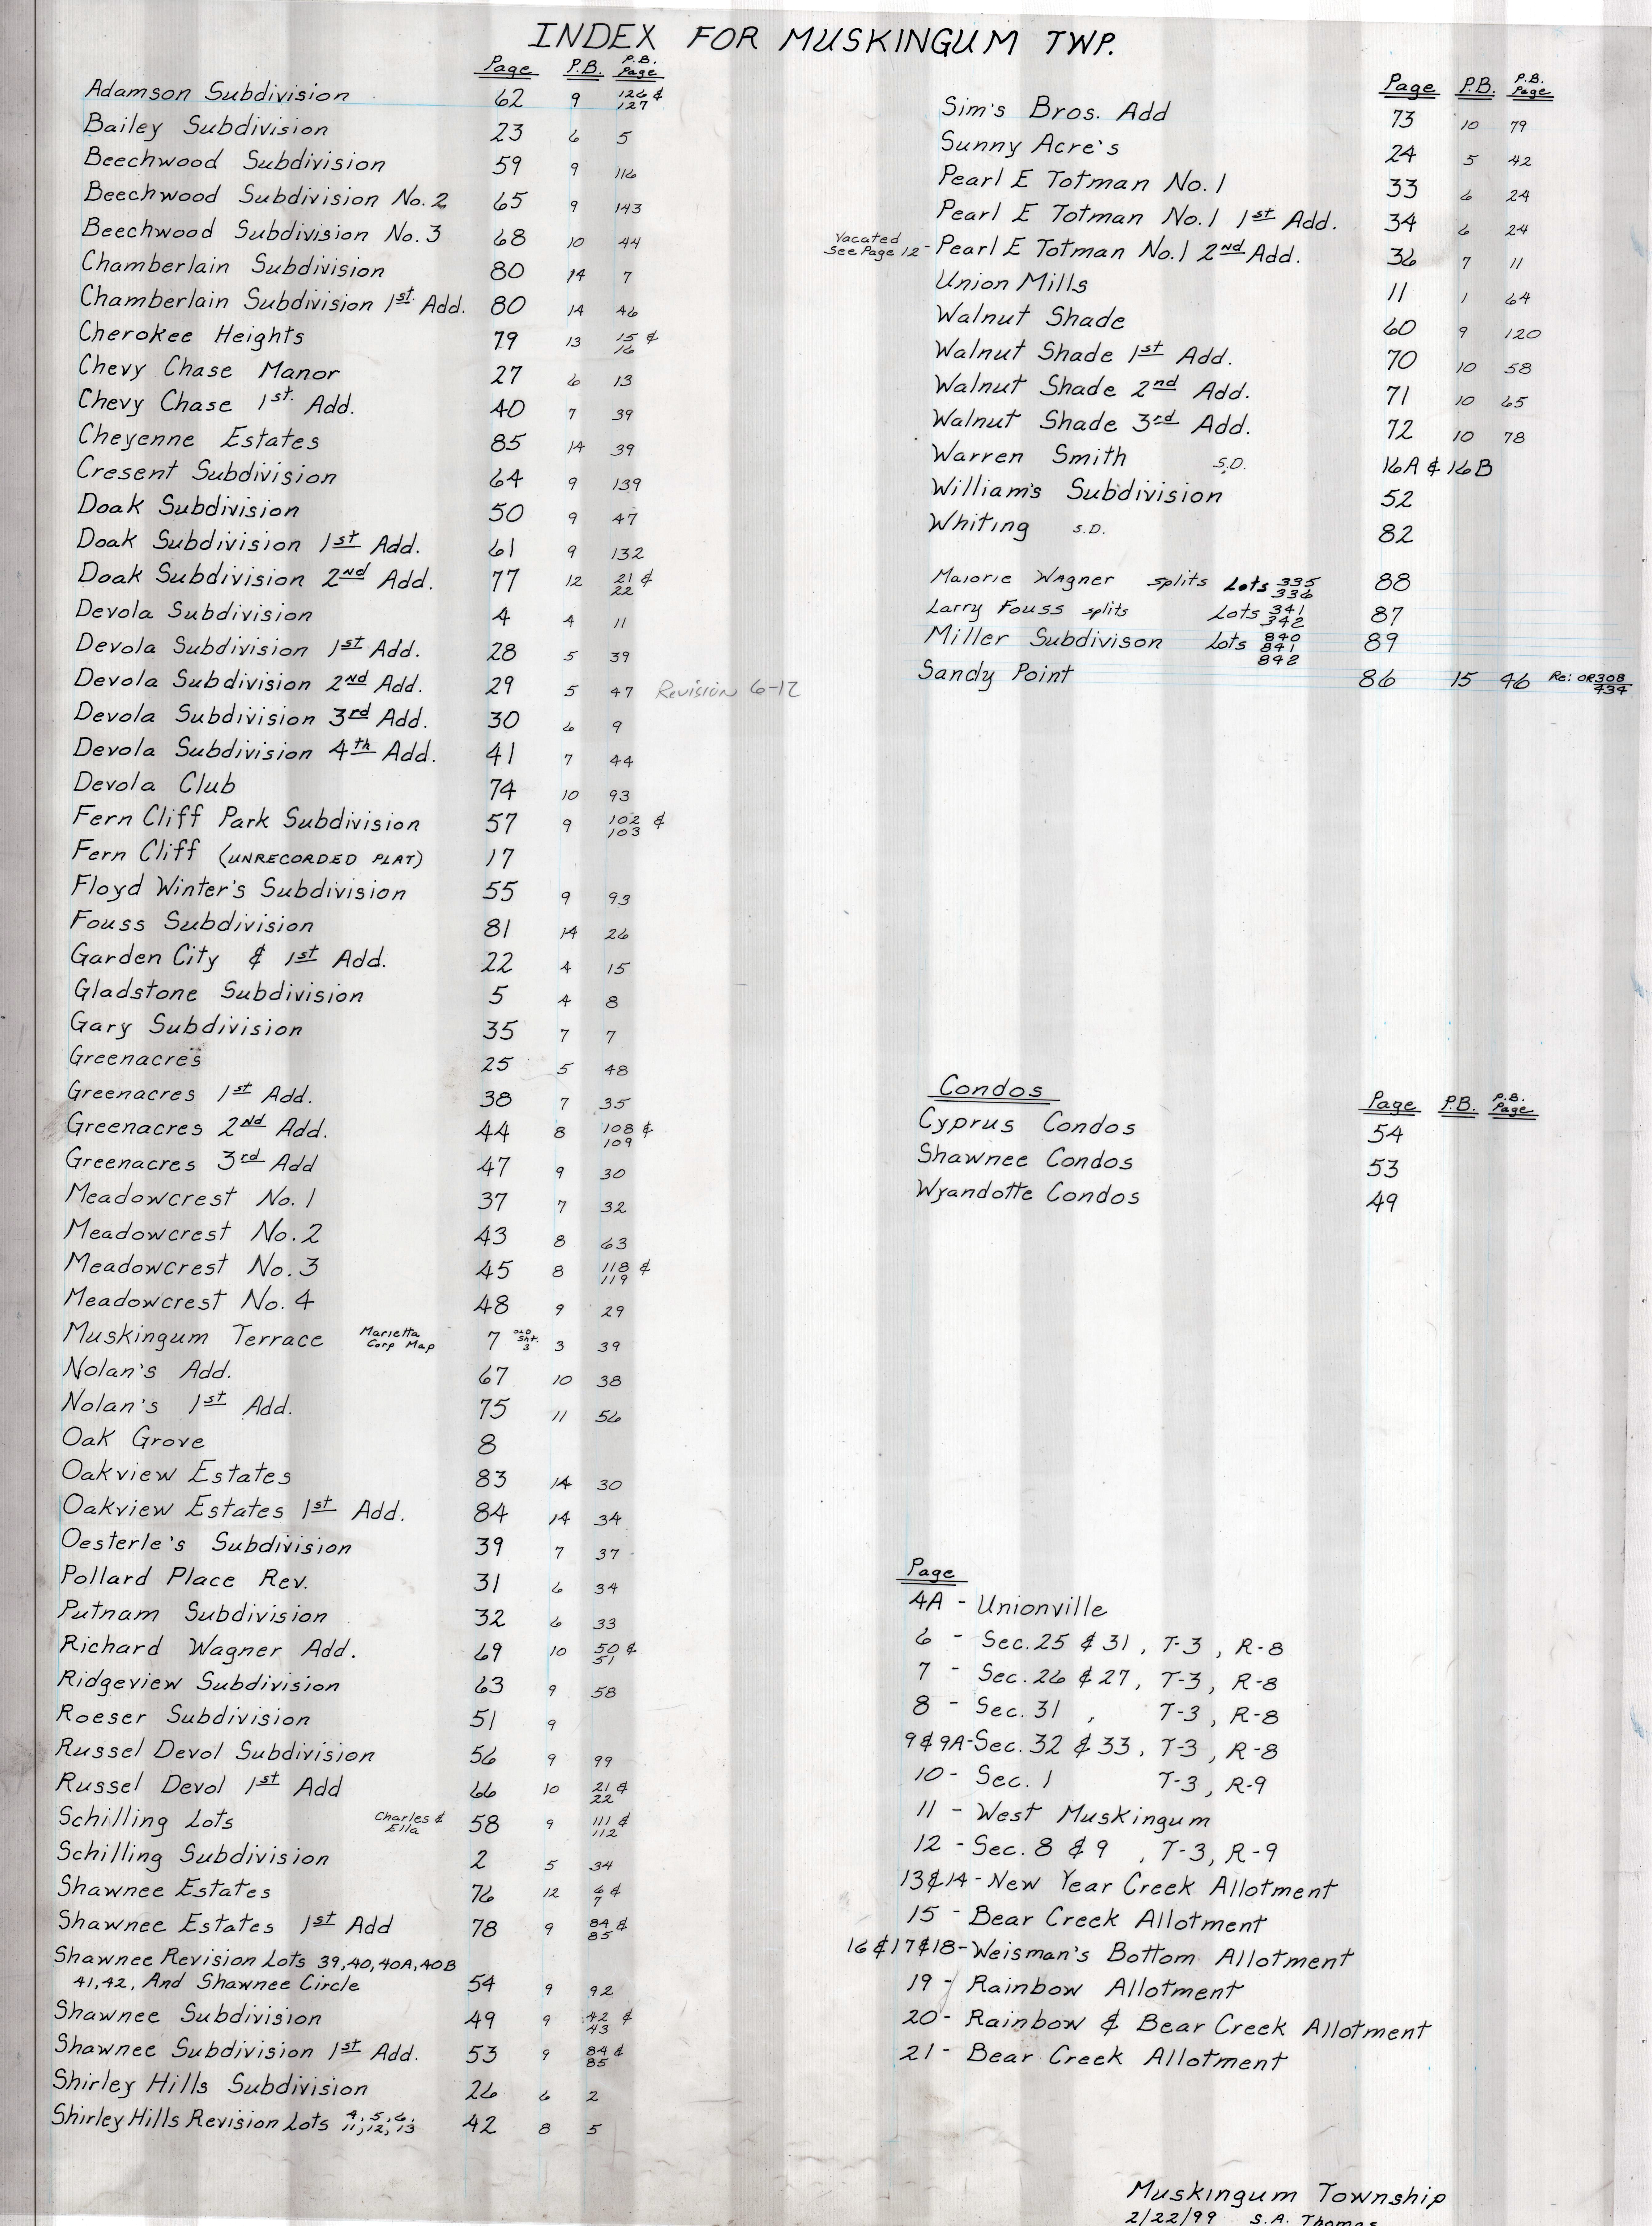 INDEX FOR MUSKINGUM TWP.
Page P.B. P.B. Page
Adamson Subdivision 62 9 126 & 127
Bailey Subdivision 23 6 5
Beechwood Subdivision 59 9 116
Beechwood Subdivision No. 2 65 9 143
Beechwood Subdivision No. 3 68 10 44
Chamberlain Subdivision 80 14 7
Chamberlain Subdivision 1st. Add. 80 14 46
Cherokee Heights 79 13 15 & 16
Chevy Chase Manor 27 6 13
Chevy Chase 1st. Add. 40 7 39
Cheyenne Estates 85 14 39
Cresent Subdivision 64 9 139
Doak Subdivision 50 9 47
Doak Subdivision 1st Add. 61 9 132
Doak Subdivision 2nd Add. 77 12 21 & 22
Devola Subdivision 4 4 11
Devola Subdivision 1st Add. 28 5 39
Devola Subdivision 2nd Add. 29 5 47 Revision 6-12
Devola Subdivision 3rd Add. 30 6 9
Devola Subdivision 4th Add. 41 7 44
Devola Club 74 10 93
Fern Cliff Park Subdivision 57 9 102 & 103
Fern Cliff (UNRECORDED PLAT) 17
Floyd Winter's Subdivision 55 9 93
Fouss Subdivision 81 14 26
Garden City & 1st Add. 22 4 15
Gladstone Subdivision 5 4 8
Gary Subdivision 35 7 7
Greenacres 25 5 48
Greenacres 1st Add. 38 7 35
Greenacres 2nd Add. 44 8 108 & 109
Greenacres 3rd Add 47 9 30
Meadowcrest No. 1 37 7 32
Meadowcrest No. 2 43 8 63
Meadowcrest No. 3 45 8 118 & 119
Meadowcrest No. 4 48 9 29
Muskingum Terrace Marietta Corp Map 7 OLD Sht. 3 3 39
Nolan's Add. 67 10 38
Nolan's 1st Add. 75 11 56
Oak Grove 8
Oakview Estates 83 14 30
Oakview Estates 1st Add. 84 14 34
Oesterle's Subdivision 39 7 37
Pollard Place Rev. 31 6 34
Putnam Subdivision 32 6 33
Richard Wagner Add. 69 10 50 & 51
Ridgeview Subdivision 63 9 58
Roeser Subdivision 51 9
Russel Devol Subdivision 56 9 99
Russel Devol 1st Add 66 10 21 & 22
Schilling Lots Charles & Ella 58 9 111 & 112
Schilling Subdivision 2 5 34
Shawnee Estates 76 12 6 & 7
Shawnee Estates 1st Add 78 9 84 & 85
Shawnee Revision Lots 39,40,40A,40B
41,42, And Shawnee Circle 54 9 92
Shawnee Subdivision 49 9 42 & 43
Shawnee Subdivision 1st Add. 53 9 84 & 85
Shirley Hills Subdivision 26 6 2
Shirley Hills Revision Lots 4, 5, 6, 11, 12, 13 42 8 5
Page P.B. P.B. Page
Sim's Bros. Add 73 10 79
Sunny Acre's 24 5 42
Pearl E Totman No. 1 33 6 24
Pearl E Totman No. 1 1st Add. 34 6 24
Vacated See Page 12 - Pearl E Totman No. 1 2nd Add. 36 7 11
Union Mills 11 1 64
Walnut Shade 60 9 120
Walnut Shade 1st Add. 70 10 58
Walnut Shade 2nd Add. 71 10 65
Walnut Shade 3rd Add. 72 10 78
Warren Smith S.D. 16A & 16B
William's Subdivision 52
Whiting S.D. 82
Majorie Wagner splits Lots 335 336 88
Larry Fouss splits Lots 341 342 87
Miller Subdivison Lots 840 841 842 89
Sandy Point 86 15 46 Re: OR 308/434
Condos
Page P.B. P.B. Page
Cyprus Condos 54
Shawnee Condos 53
Wyandotte Condos 49
Page
4A - Unionville
6 - Sec. 25 & 31, T-3, R-8
7 - Sec. 26 & 27, T-3, R-8
8 - Sec. 31, T-3, R-8
9 & 9A - Sec. 32 & 33, T-3, R-8
10 - Sec. 1 T-3, R-9
11 - West Muskingum
12 - Sec. 8 & 9, T-3, R-9
13 & 14 - New Year Creek Allotment
15 - Bear Creek Allotment
16 & 17 & 18 - Weisman's Bottom Allotment
19 - Rainbow Allotment
20 - Rainbow & Bear Creek Allotment
21 - Bear Creek Allotment
Muskingum Township
2/22/99 S.A. Thomas